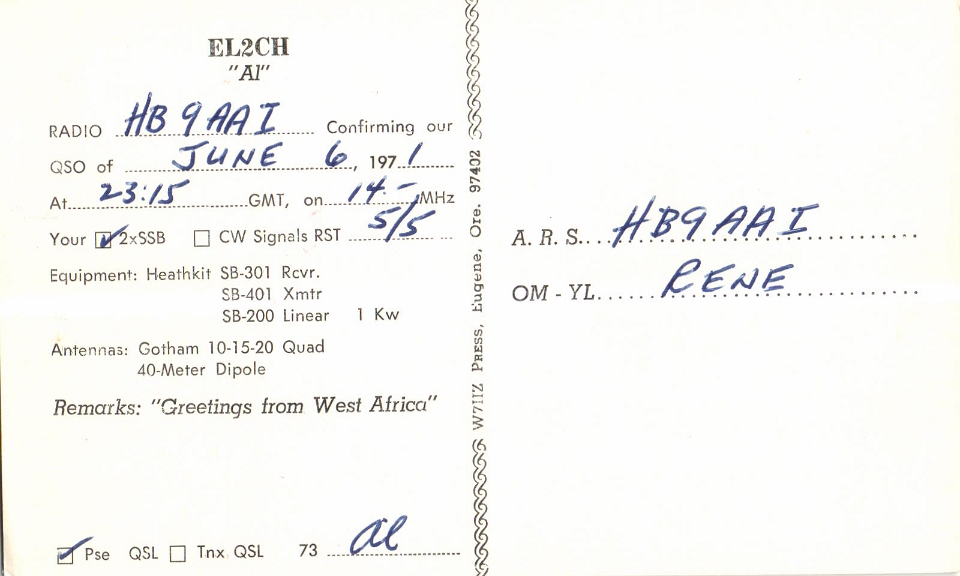 EL2CH
"Al"
RADIO HB9AAI Confirming our
QSO of JUNE 6, 1971
At 23:15 GMT, on 14.- MHz
Your ☑ 2xSSB ☐ CW Signals RST 5/5
Equipment: Heathkit SB-301 Rcvr.
SB-401 Xmtr
SB-200 Linear 1 Kw
Antennas: Gotham 10-15-20 Quad
40-Meter Dipole
Remarks: "Greetings from West Africa"
☑ Pse QSL ☐ Tnx QSL 73 Al
W7IIZ PRESS, Eugene, Ore. 97402
A. R. S. HB9AAI
OM - YL RENE